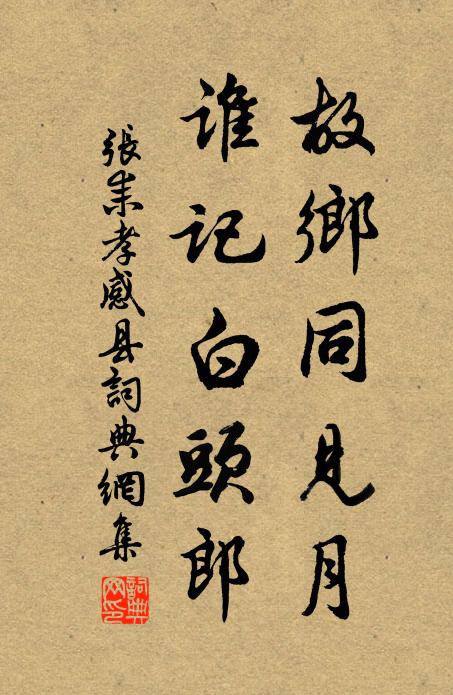 故鄉同見月
谁記白頭郎
張耒孝感县詞典網集
詞典网印